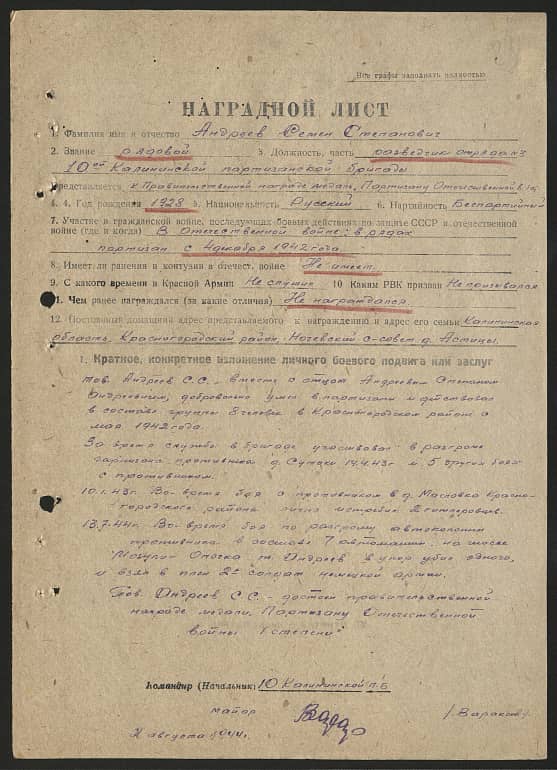 Все графы заполнять полностью
НАГРАДНОЙ ЛИСТ
1. Фамилия имя и отчество Андреев Семен Степанович
2. Звание рядовой 3. Должность, часть разведчик отряда №3
10ой Калининской партизанской бригады
представляется к Правительственной награде медаль „Партизану Отечественной в. I ст
4. 4. Год рождения 1928 5. Национальность Русский 6. Партийность Беспартийный
7. Участие в гражданской войне, последующих боевых действиях по защите СССР и отечественной
войне (где и когда) В Отечественной войне: в рядах
партизан с 4 декабря 1942 года.
8. Имеет ли ранения и контузии в отечест. войне Не имеет.
9. С какого времени в Красной Армии Не служил 10. Каким РВК призван Не призывался
11. Чем ранее награждался (за какие отличия) Не награждался.
12. Постоянный домашний адрес представляемого к награждению и адрес его семьи Калининская
область, Красногородский район, с-совет д.
1. Краткое, конкретное изложение личного боевого подвига или заслуг
тов. Андреев С.С. – вместе с отцом Андреевым Степаном
Андреевичем, добровольно ушел в партизаны и действовал
в составе группы 8 человек в Красногородском районе с
мая 1942 года.
За время службы в бригаде участвовал в разгроме
гарнизона противника д. 19.4.43г и 5 других боях
с противником.
10.1.43г. Во-время боя с противником в д. Масловка Красно-
городского района лично истребил 2 гитлеровцев.
13.7.44г. Во-время боя по разгрому автоколонны
противника в составе 7 автомашин на шоссе
Опочка т. Андреев в упор убил одного,
и взял в плен 2х солдат немецкой армии.
Тов. Андреев С.С. – достоин правительственной
награде медали „Партизану Отечественной
войны I степени"
Командир (Начальник) 10 Калининской п.б
майор /Вараксов/
августа 1944г.